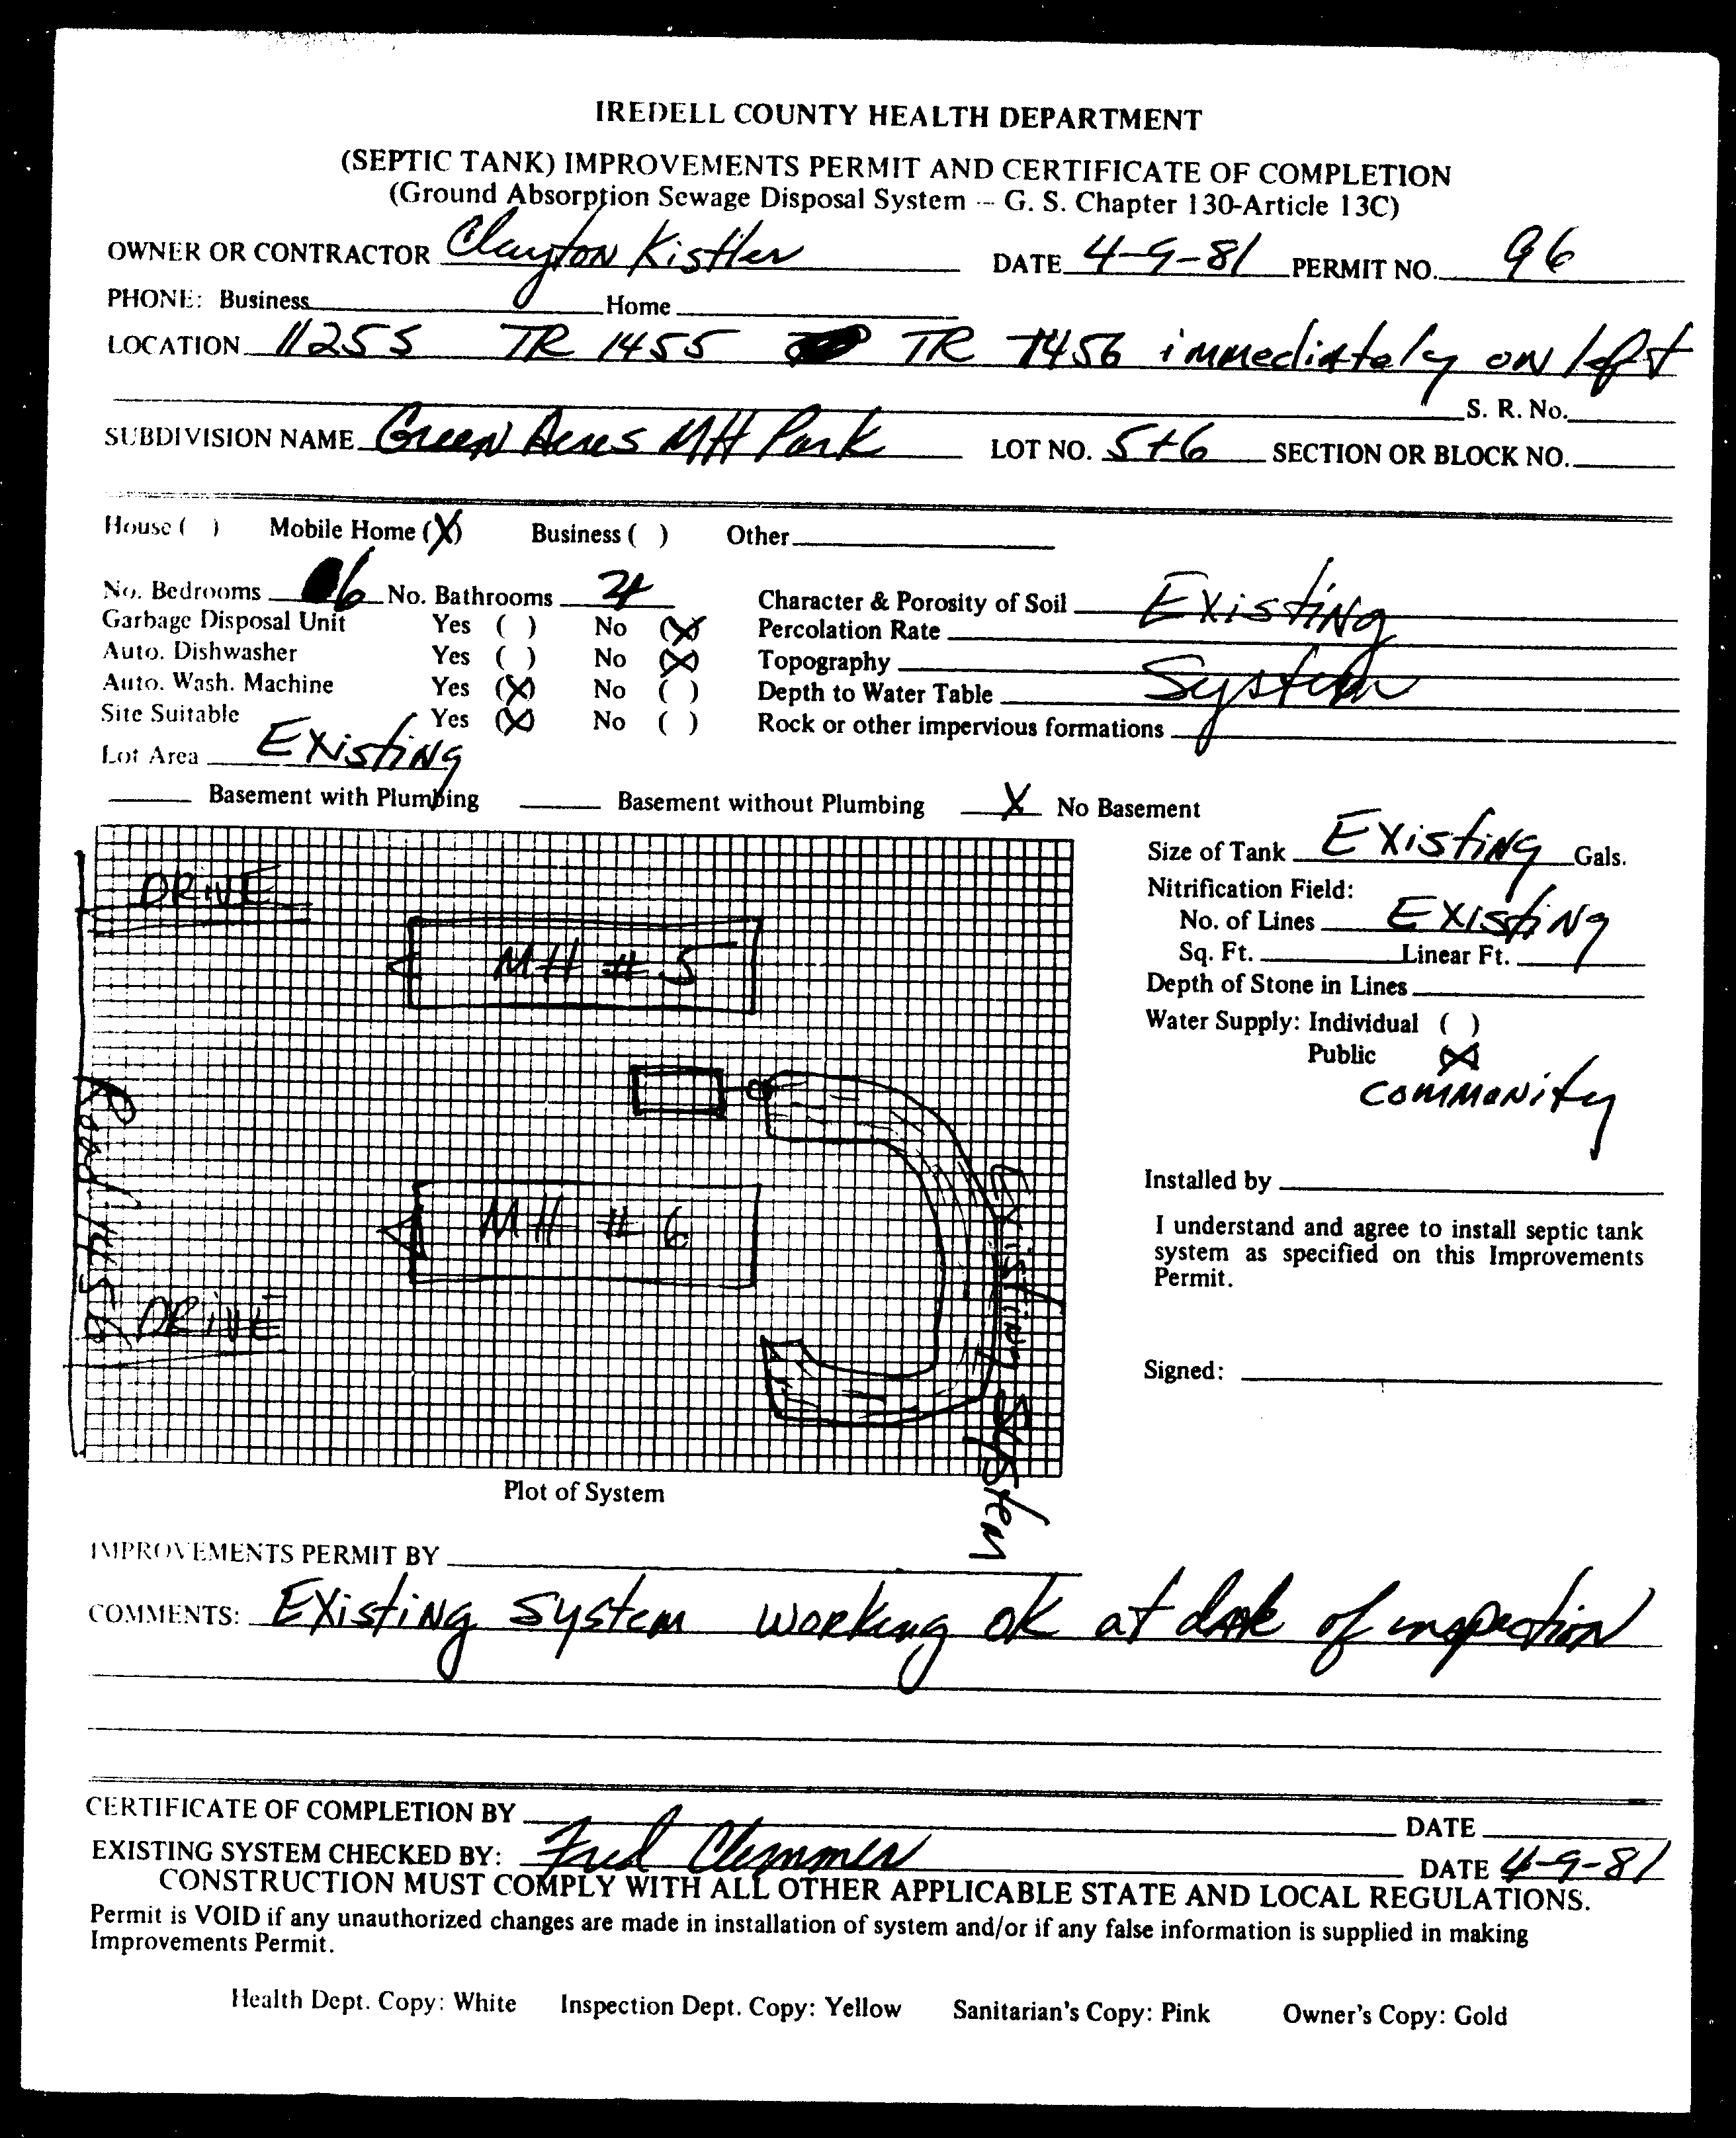 IREDELL COUNTY HEALTH DEPARTMENT
(SEPTIC TANK) IMPROVEMENTS PERMIT AND CERTIFICATE OF COMPLETION
(Ground Absorption Sewage Disposal System -- G. S. Chapter 130-Article 13C)
OWNER OR CONTRACTOR Clayton Kistler DATE 4-9-81 PERMIT NO. 96
PHONE: Business Home
LOCATION TR 1455 TR 1456 immediately on left
S. R. No.
SUBDIVISION NAME Green Acres MH Park LOT NO. 5+6 SECTION OR BLOCK NO.
House ( ) Mobile Home (X) Business ( ) Other
No. Bedrooms 6 No. Bathrooms 4 Character & Porosity of Soil Existing
Garbage Disposal Unit Yes ( ) No (X) Percolation Rate
Auto. Dishwasher Yes ( ) No (X) Topography System
Auto. Wash. Machine Yes (X) No ( ) Depth to Water Table
Site Suitable Yes (X) No ( ) Rock or other impervious formations
Lot Area Existing
Basement with Plumbing Basement without Plumbing X No Basement
Size of Tank Existing Gals.
Nitrification Field:
No. of Lines Existing
Sq. Ft. Linear Ft.
Depth of Stone in Lines
Water Supply: Individual ( )
Public (X)
Community
Installed by
I understand and agree to install septic tank
system as specified on this Improvements
Permit.
Signed:
DRIVE
MH # 5
Road 1456
MH # 6
DRIVE
Existing System
Plot of System
IMPROVEMENTS PERMIT BY
COMMENTS: Existing system working ok at date of inspection
CERTIFICATE OF COMPLETION BY DATE
EXISTING SYSTEM CHECKED BY: Fred Clemmer DATE 4-9-81
CONSTRUCTION MUST COMPLY WITH ALL OTHER APPLICABLE STATE AND LOCAL REGULATIONS.
Permit is VOID if any unauthorized changes are made in installation of system and/or if any false information is supplied in making
Improvements Permit.
Health Dept. Copy: White Inspection Dept. Copy: Yellow Sanitarian's Copy: Pink Owner's Copy: Gold